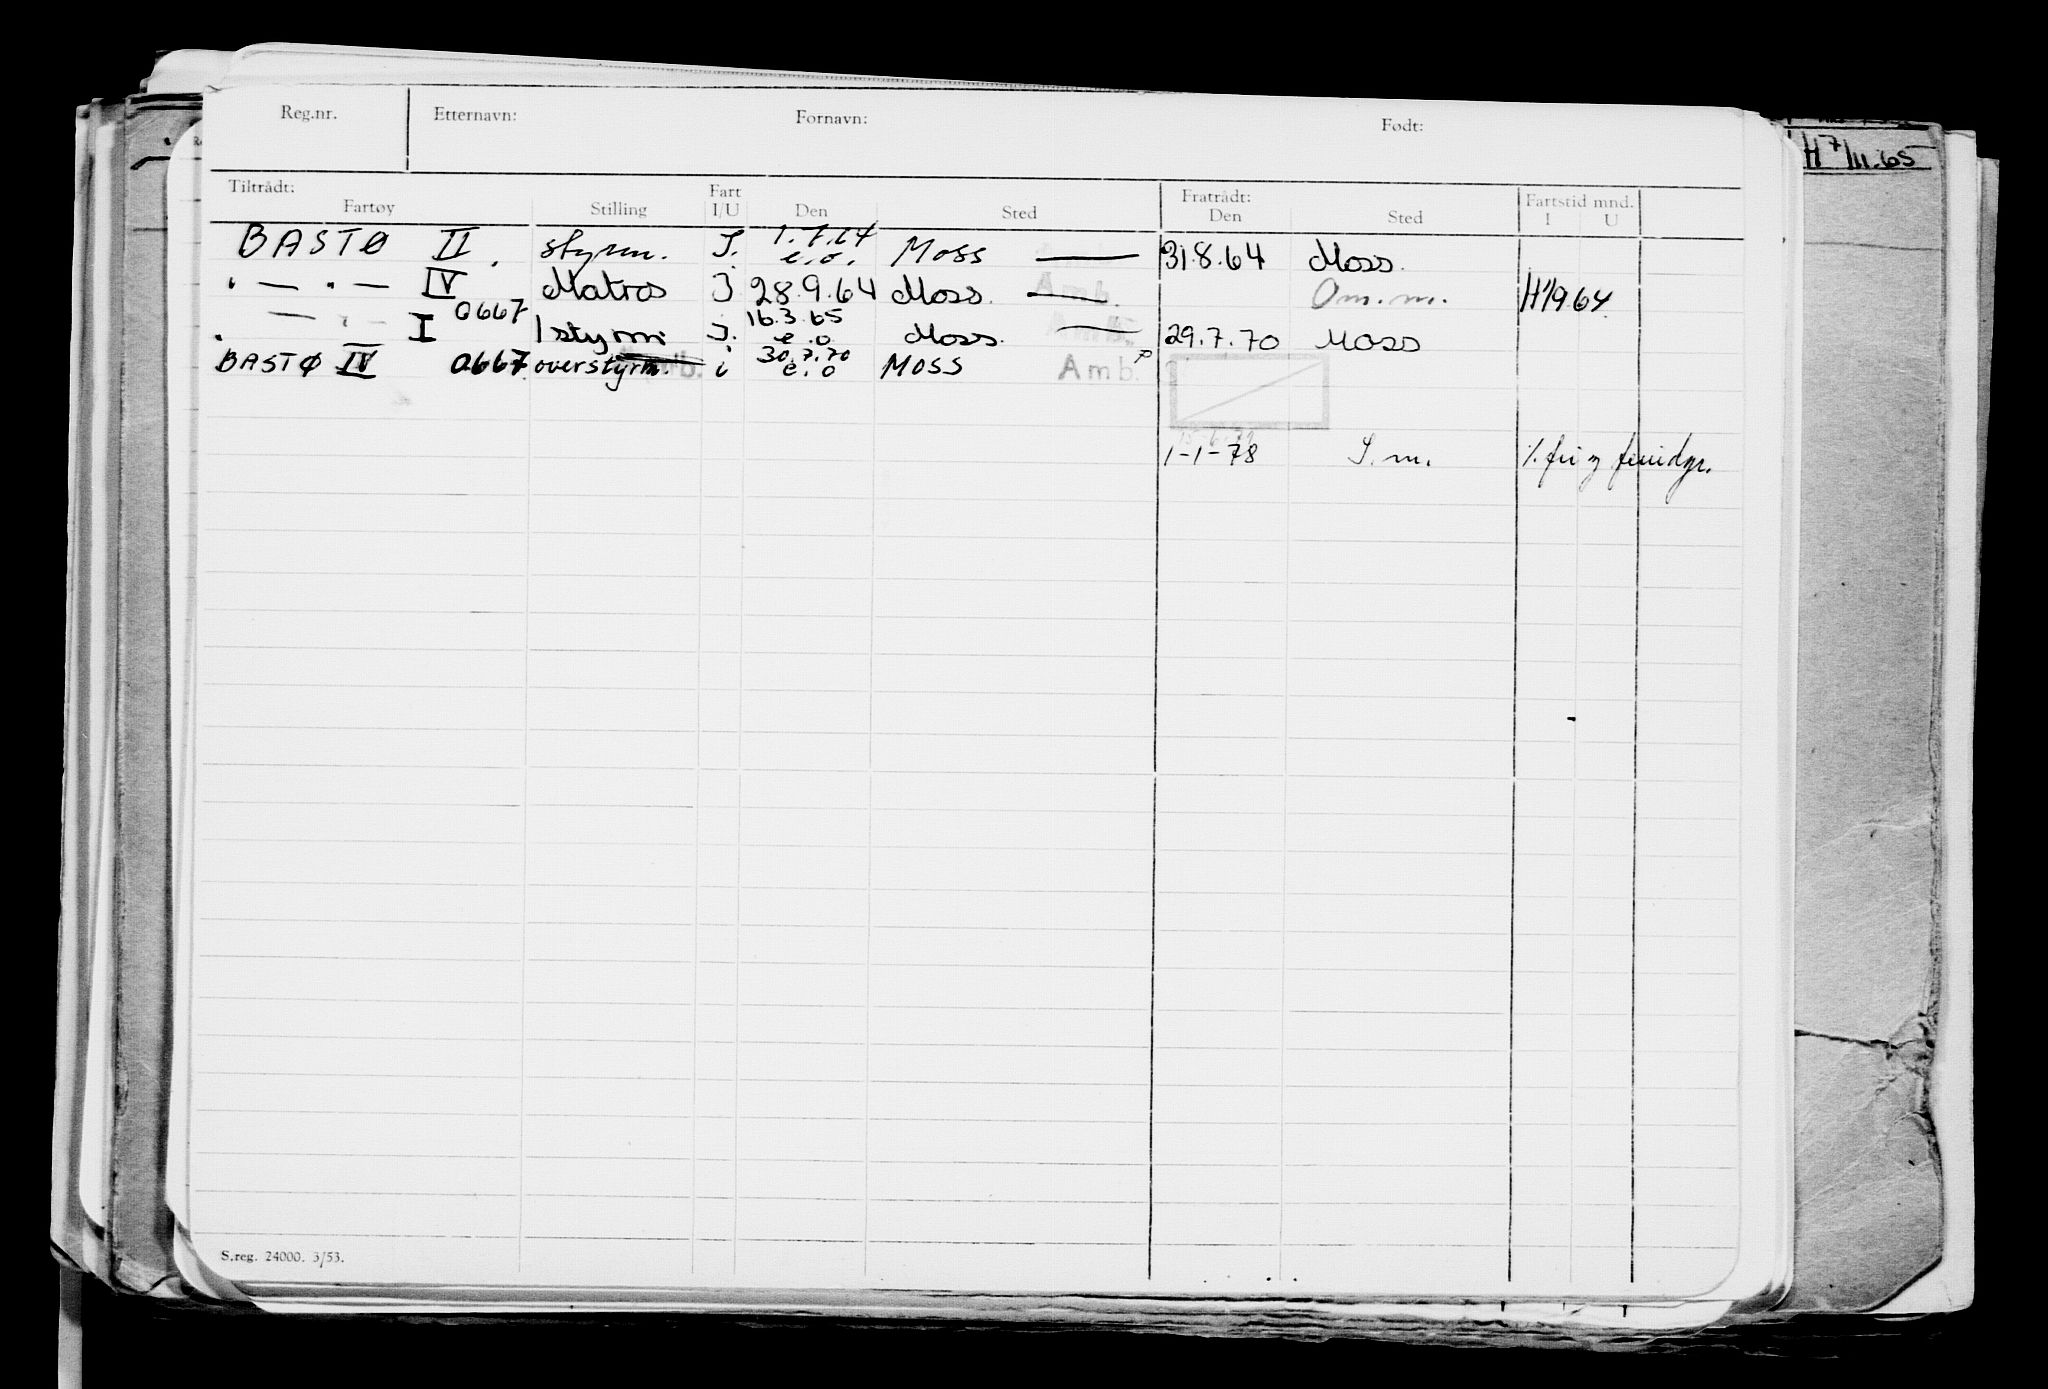 Reg.nr. Etternavn: Fornavn: Født:
H 7/11.65
Tiltrådt: Fart Fratrådt: Fartstid mnd.
Fartøy Stilling I/U Den Sted Den Sted I U
BASTØ II. styrm. I. 1.7.64 e.o. Moss — 31.8.64 Moss.
" — " — IV Matros I 28.9.64 Moss. — Om.m. H 1/9 64
" — " — I 0667 1 styrm. I. 16.3.65 e.o Moss. — 29.7.70 Moss
BASTØ IV 0667 overstyrm. i 30.7.70 e.o MOSS Amb.
1-1-78 S.m.
S.reg. 24000. 3/53.